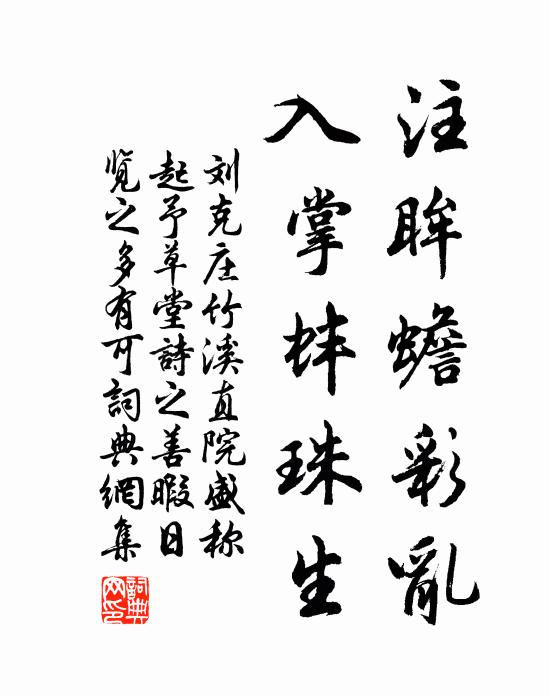 注眸蟾彩亂
入掌蚌珠生
刘克庄竹溪直院盛称
起予草堂詩之善暇日
览之多有可詞典網集
詞典网印